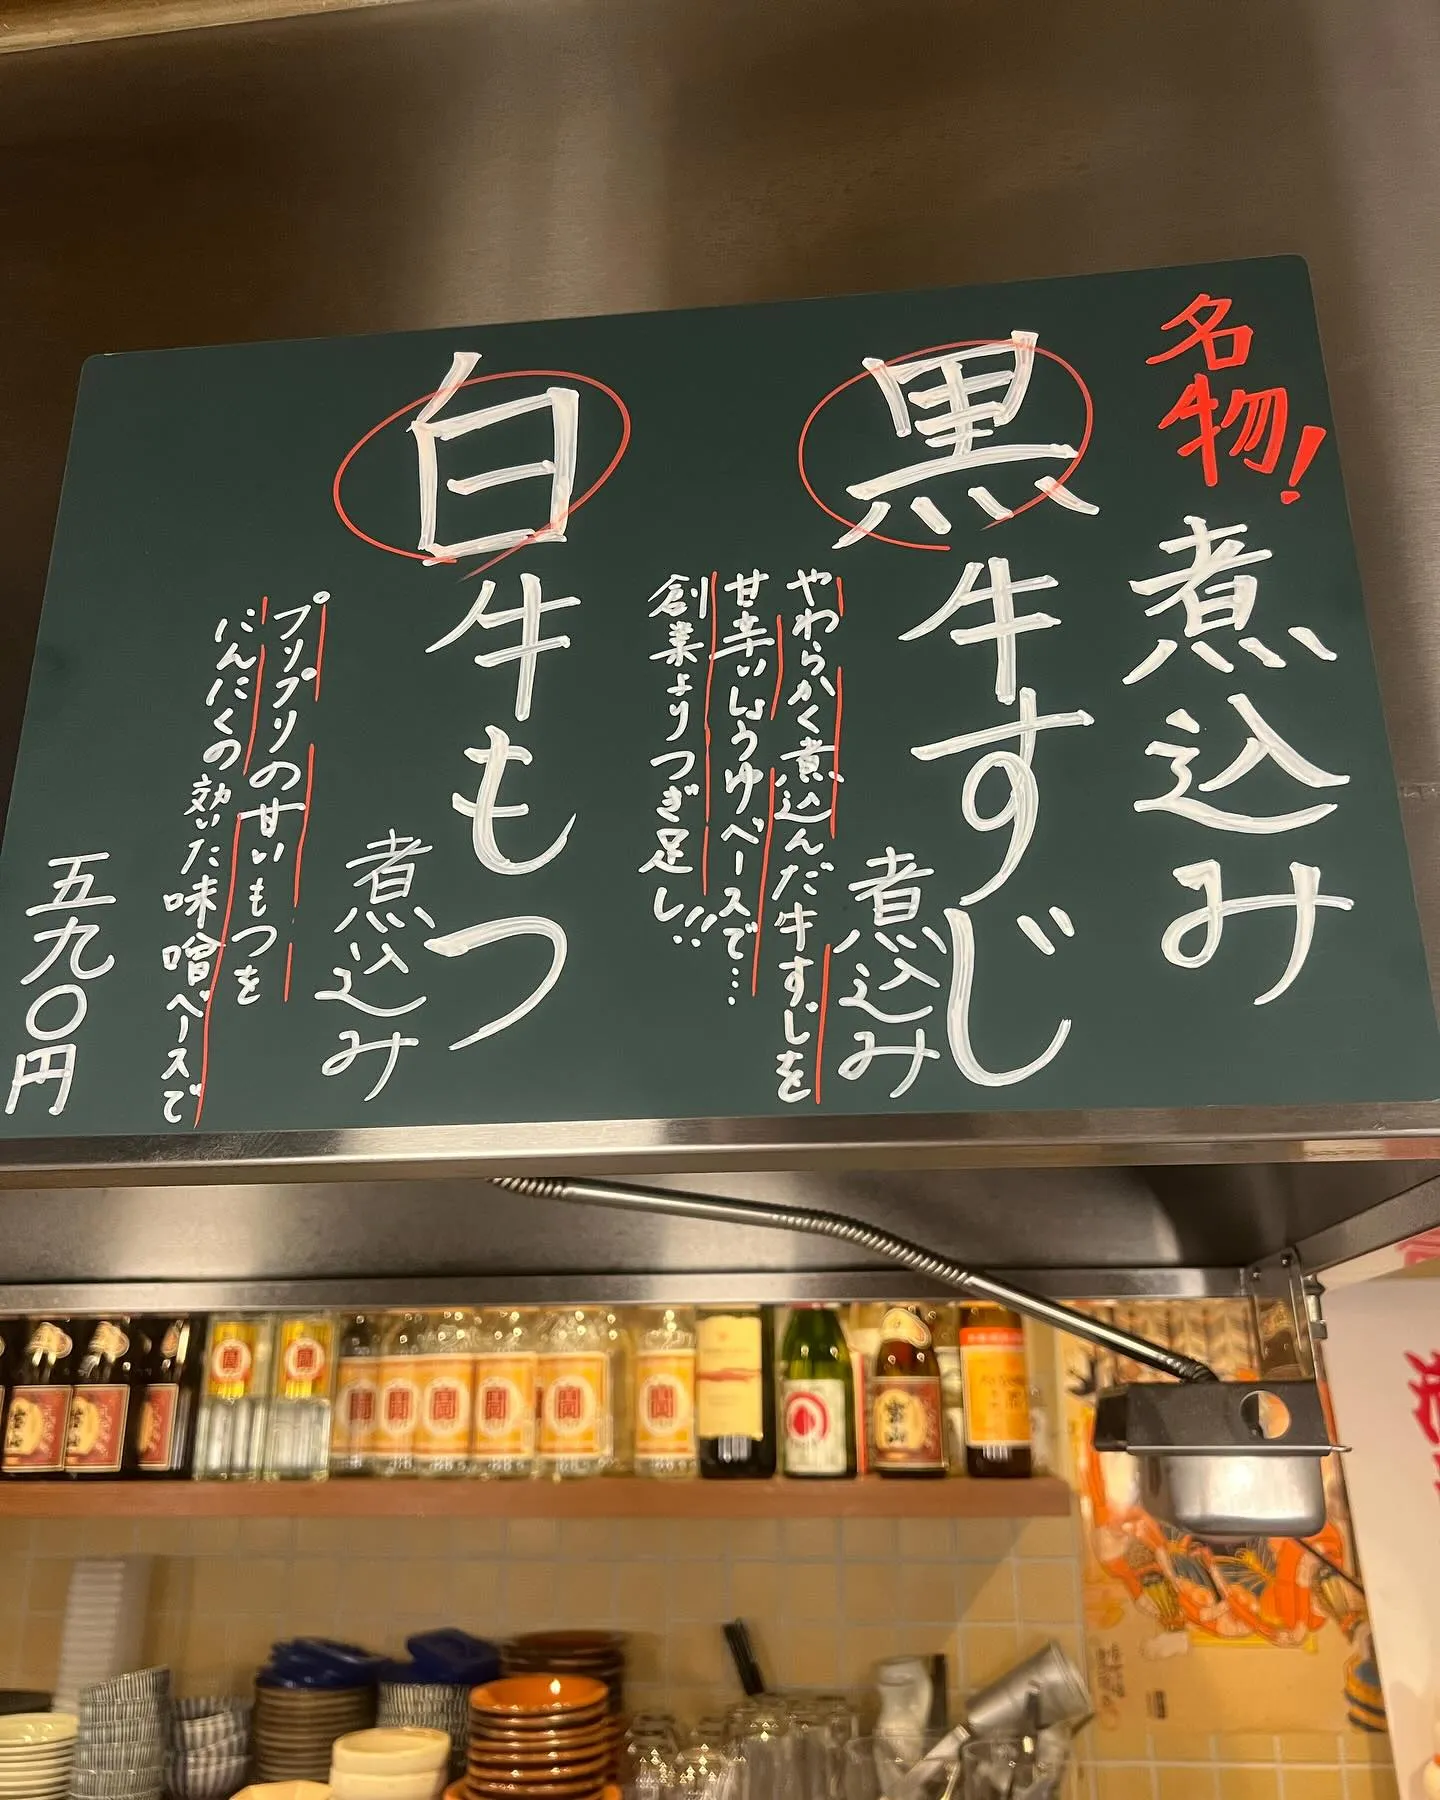 名物!
煮込み
黒牛すじ
煮込み
やわらかく煮込んだ牛すじを
甘辛いしょうゆベースで…
創業よりつぎ足し!!
白牛もつ
煮込み
プリプリの甘いもつを
にんにくの効いた味噌ベースで
五九〇円
寶
寶
寶
寶
寶
寶
寶
寶